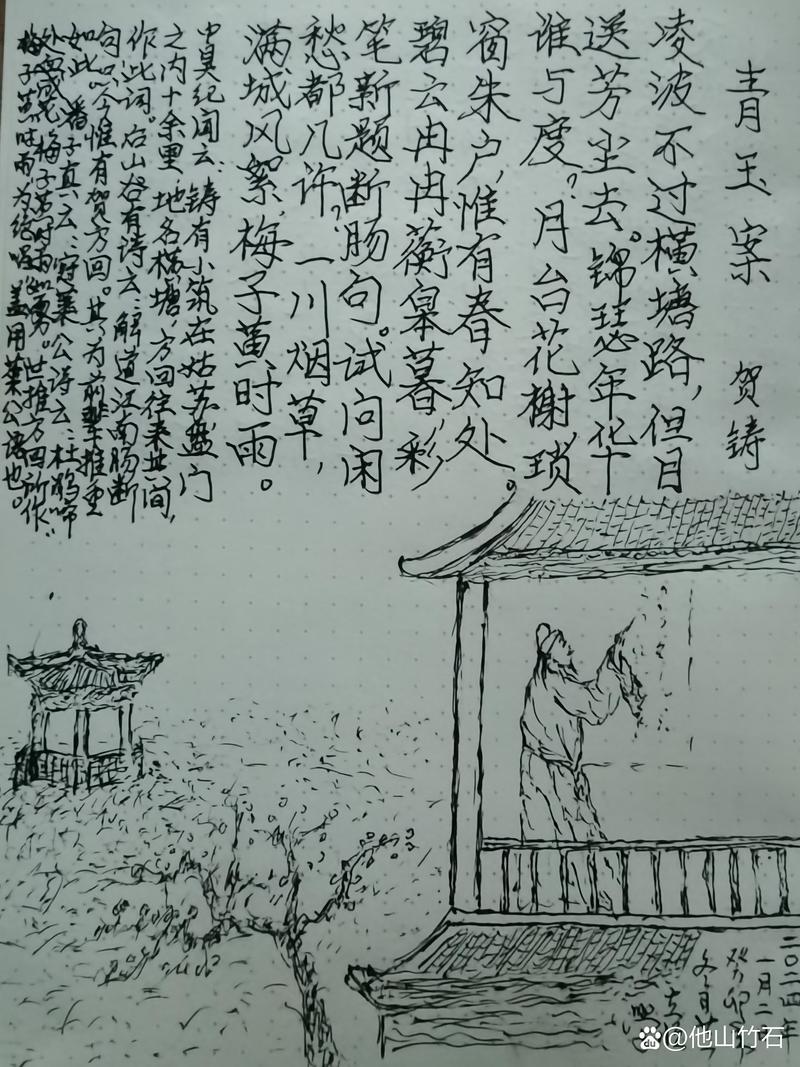 青玉案 贺铸
凌波不过横塘路，但目
送芳尘去。锦瑟年华
谁与度？月台花榭，琐
窗朱户，惟有春知处。
碧云冉冉蘅皋暮，彩
笔新题断肠句。试问闲
愁都几许？一川烟草，
满城风絮，梅子黄时雨。
中吴纪闻云：铸有小筑在姑苏盘门
之内十余里，地名横塘，方回往来其间，
作此词。后山谷有诗云：解道江南肠断
句，只今惟有贺方回。其为前辈推重
如此。潘子真云：寇莱公诗云：杜鹃啼
处血成花，梅子黄时雨如雾。世推方回所作
梅子黄时雨为绝唱，盖用莱公语也。
二〇二四年
一月二
癸卯
冬月
@他山竹石